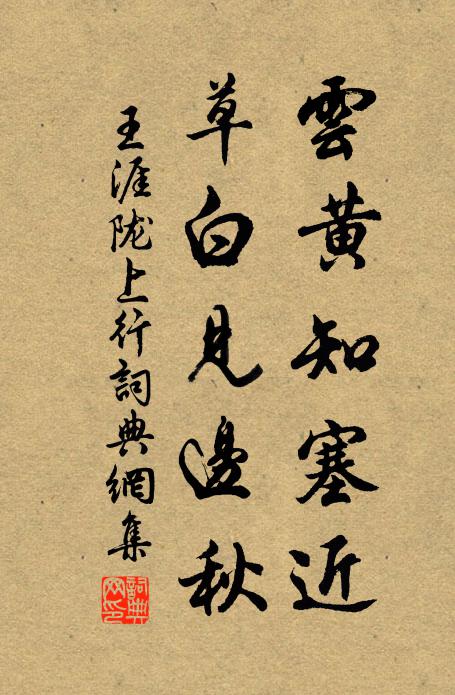 雲黄知塞近
草白見邊秋
王涯陇上行詞典網集
詞典网印